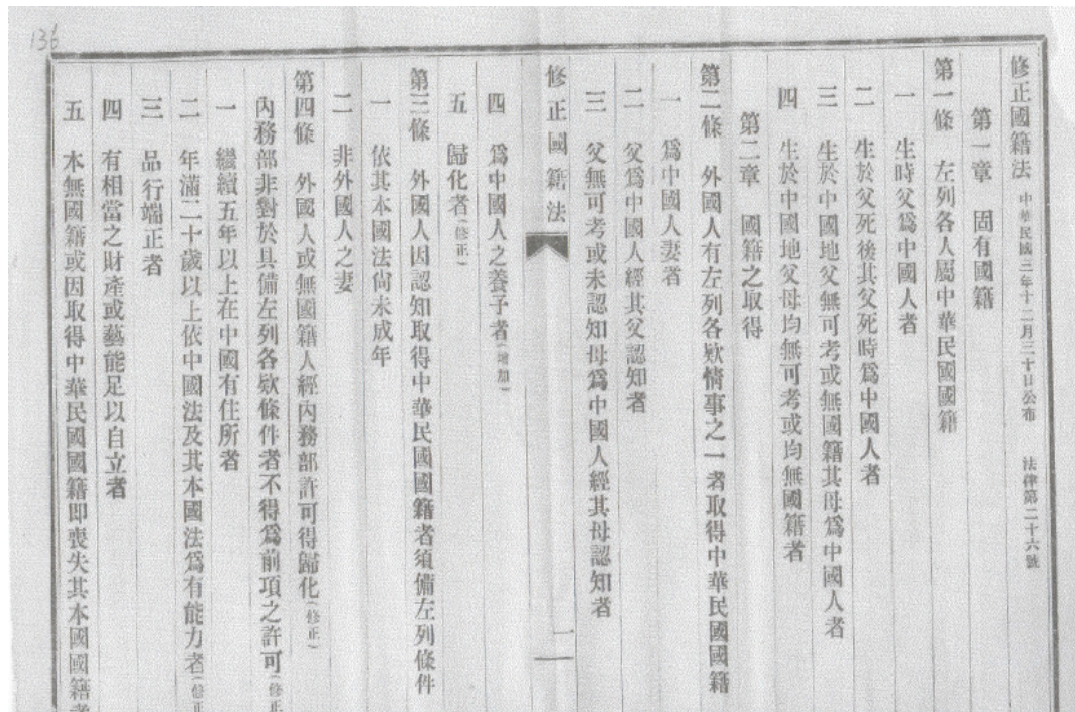 136
修正國籍法 中華民國三年十二月三十日公布 法律第二十六號
第一章 固有國籍
第一條 左列各人屬中華民國國籍
一 生時父爲中國人者
二 生於父死後其父死時爲中國人者
三 生於中國地父無可考或無國籍其母爲中國人者
四 生於中國地父母均無可考或均無國籍者
第二章 國籍之取得
第二條 外國人有左列各欵情事之一者取得中華民國國籍
一 爲中國人妻者
二 父爲中國人經其父認知者
三 父無可考或未認知母爲中國人經其母認知者
修正國籍法 一
四 爲中國人之養子者(增加)
五 歸化者(修正)
第三條 外國人因認知取得中華民國國籍者須備左列條件
一 依其本國法尙未成年
二 非外國人之妻
第四條 外國人或無國籍人經內務部許可得歸化(修正)
內務部非對於具備左列各欵條件者不得爲前項之許可(修正
一 繼續五年以上在中國有住所者
二 年滿二十歲以上依中國法及其本國法爲有能力者(修正
三 品行端正者
四 有相當之財產或藝能足以自立者
五 本無國籍或因取得中華民國國籍即喪失其本國國籍者